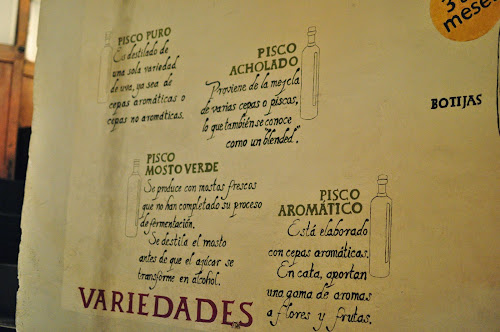 PISCO PURO
Es destilado de
una sola variedad
de uva, ya sea de
cepas aromáticas o
cepas no aromáticas.
PISCO
ACHOLADO
Proviene de la mezcla
de varias cepas o piscos,
lo que también se conoce
como un "blended".
PISCO
MOSTO VERDE
Se produce con mostos frescos
que no han completado su proceso
de fermentación.
Se destila el mosto
antes de que el azúcar se
transforme en alcohol.
PISCO
AROMÁTICO
Está elaborado
con cepas aromáticas.
En cata, aportan
una gama de aromas
a flores y frutas.
VARIEDADES
BOTIJAS
mese